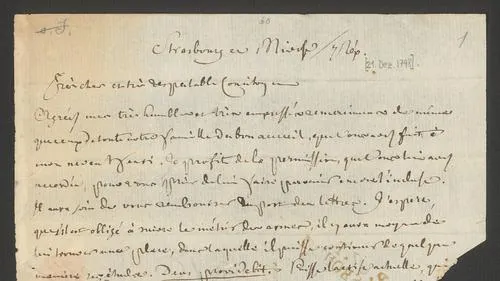 Strasbourg ce 1 Nivose 7 Rép.
[21. Dez. 1798].
1
Très cher et très respectable Concitoyen
Agréés mes très humbles et très empressés remerciments de même
que ceux de toute notre famille du bon accueil, que Vous avés fait à
mon neveu Henri. Je profite de la permission, que Vous lui avés
accordée, pour vous prier de lui faire parvenir incluse.
Il aura soin de vous rembourser du port des lettres. J'espère,
qu'étant obligé à suivre le métier des armes, il y aura moyen de
lui trouver une place, dans laquelle il puisse continuer de quelque
manière ses études. Deus providebit. Puisse la crise actuelle, qui